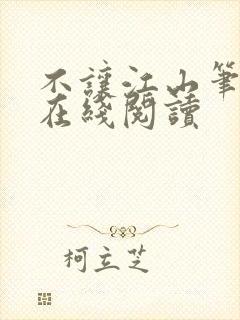 不讓江山筆
在綫閱讀
柯立芝